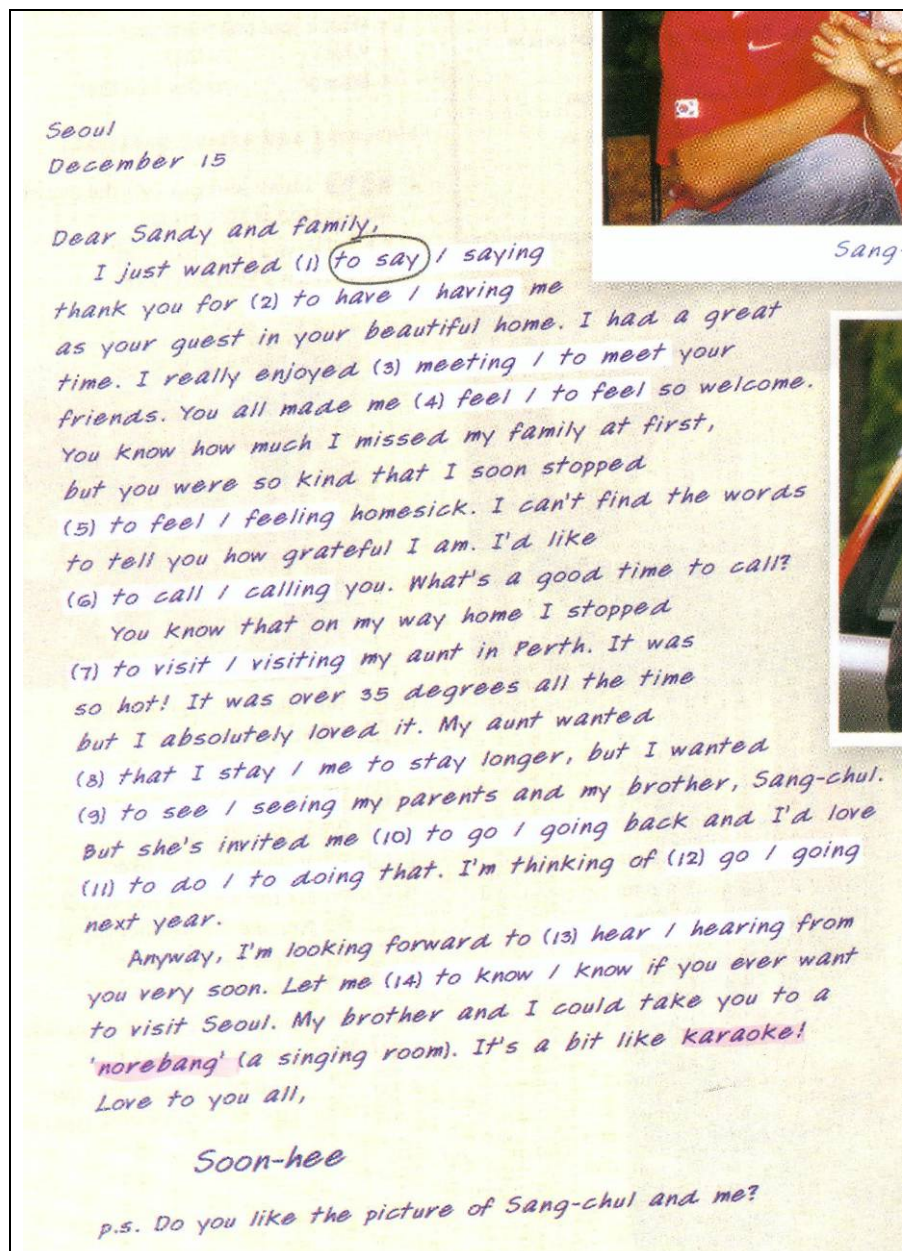 Seoul
December 15
Dear Sandy and family,
I just wanted (1) to say / saying
thank you for (2) to have / having me
as your guest in your beautiful home. I had a great
time. I really enjoyed (3) meeting / to meet your
friends. You all made me (4) feel / to feel so welcome.
You know how much I missed my family at first,
but you were so kind that I soon stopped
(5) to feel / feeling homesick. I can't find the words
to tell you how grateful I am. I'd like
(6) to call / calling you. What's a good time to call?
You know that on my way home I stopped
(7) to visit / visiting my aunt in Perth. It was
so hot! It was over 35 degrees all the time
but I absolutely loved it. My aunt wanted
(8) that I stay / me to stay longer, but I wanted
(9) to see / seeing my parents and my brother, Sang-chul.
But she's invited me (10) to go / going back and I'd love
(11) to do / to doing that. I'm thinking of (12) go / going
next year.
Anyway, I'm looking forward to (13) hear / hearing from
you very soon. Let me (14) to know / know if you ever want
to visit Seoul. My brother and I could take you to a
'norebang' (a singing room). It's a bit like karaoke!
Love to you all,
Soon-hee
p.s. Do you like the picture of Sang-chul and me?
Sang-